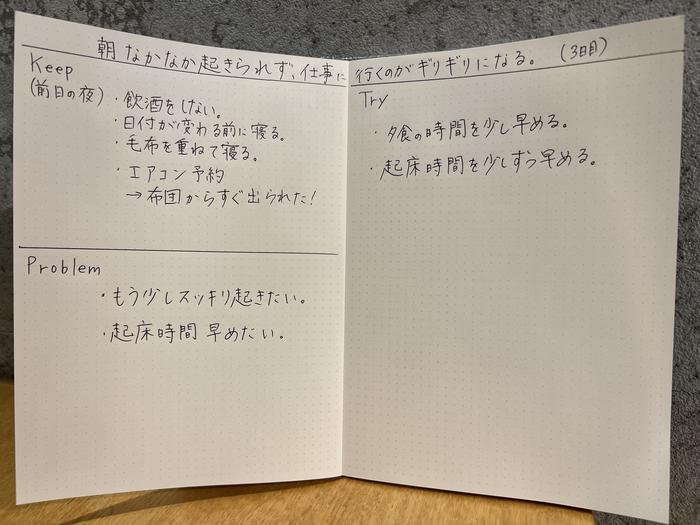 朝なかなか起きられず、仕事に行くのがギリギリになる。(3日目)
Keep
(前日の夜)・飲酒をしない。
・日付が変わる前に寝る。
・毛布を重ねて寝る。
・エアコン予約
→布団からすぐ出られた!
Problem
・もう少しスッキリ起きたい。
・起床時間 早めたい。
Try
・夕食の時間を少し早める。
・起床時間を少しずつ早める。